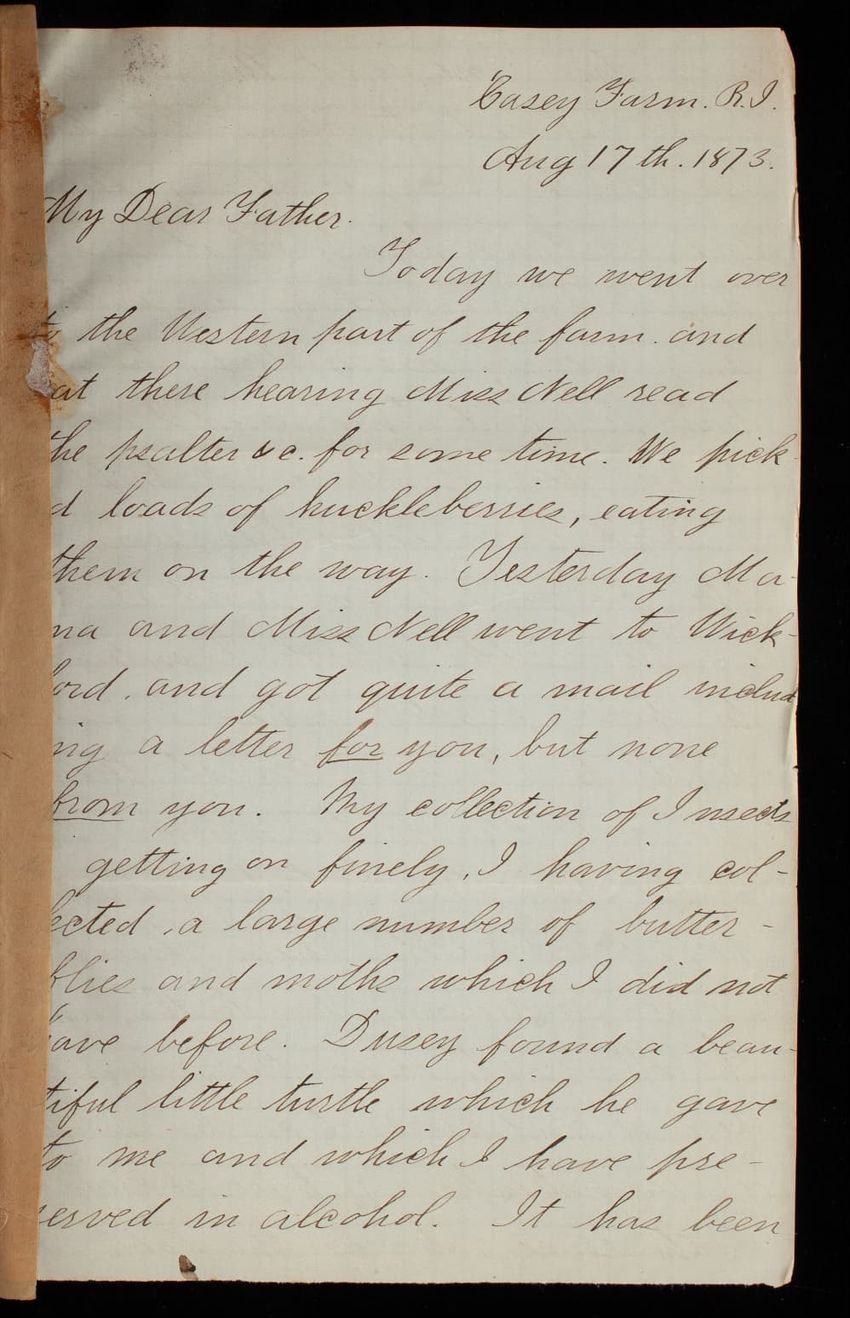 Casey Farm. R.I.
Aug 17th. 1873.
My Dear Father.
Today we went over
to the Western part of the farm. and
at there hearing Miss Nell read
the psalter &c. for some time. We pick-
d loads of huckleberries, eating
them on the way. Yesterday Ma-
ma and Miss Nell went to Wick-
ord. and got quite a mail includ
ing a letter for you, but none
from you. My collection of Insects
getting on finely, I having col-
lected, a large number of butter-
flies and moths which I did not
have before. Dusey found a beau-
tiful little turtle which he gave
to me and which I have pre-
served in alcohol. It has been